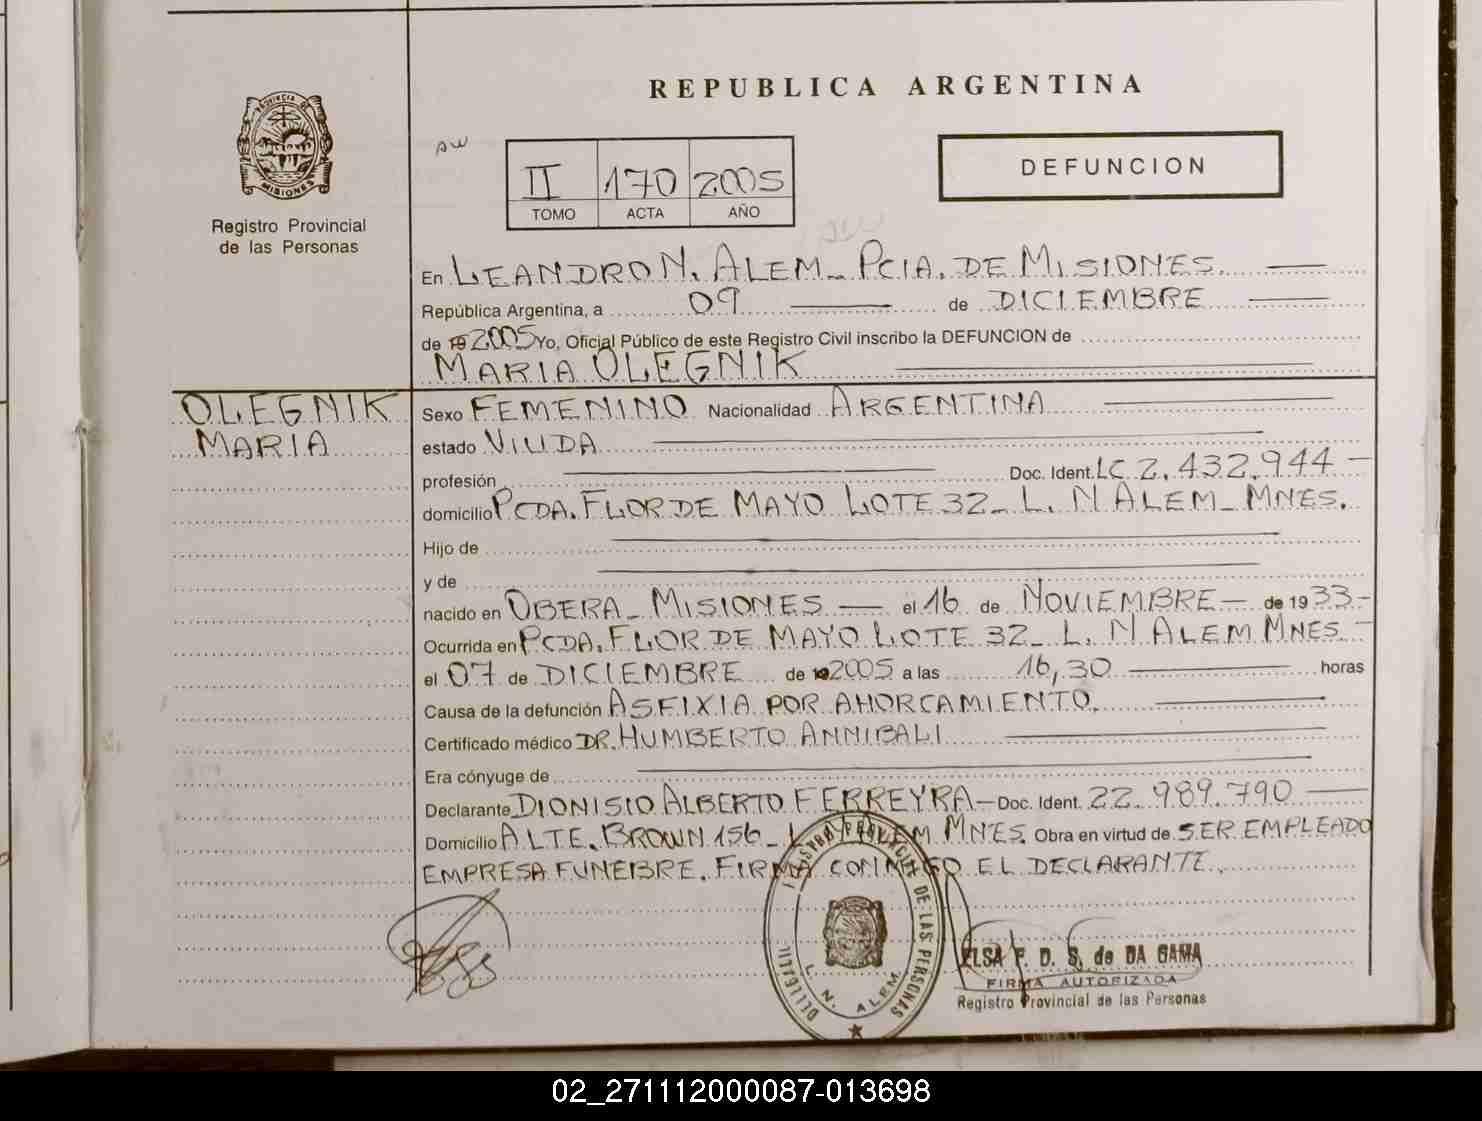 REPUBLICA ARGENTINA
PROVINCIA DE
MISIONES
Registro Provincial
de las Personas
II 170 2005
TOMO ACTA AÑO
DEFUNCION
En LEANDRO N. ALEM_ PCIA. DE MISIONES.
República Argentina, a 09 de DICIEMBRE
de 2005 Yo, Oficial Público de este Registro Civil inscribo la DEFUNCION de
MARIA OLEGNIK
OLEGNIK
MARIA
Sexo FEMENINO Nacionalidad ARGENTINA
estado VIUDA
profesión Doc. Ident. LC 2.432.944 —
domicilio PCDA. FLOR DE MAYO LOTE 32_ L. N ALEM_ MNES.
Hijo de
y de
nacido en OBERA_ MISIONES — el 16 de NOVIEMBRE — de 1933 -
Ocurrida en PCDA. FLOR DE MAYO LOTE 32_ L. N ALEM MNES -
el 07 de DICIEMBRE de 2005 a las 16,30 horas
Causa de la defunción ASFIXIA POR AHORCAMIENTO.
Certificado médico DR. HUMBERTO ANNIBALI
Era cónyuge de
Declarante DIONISIO ALBERTO FERREYRA — Doc. Ident. 22.989.790
Domicilio ALTE. BROWN 156_ L. N ALEM. MNES. Obra en virtud de SER EMPLEADO
EMPRESA FUNEBRE. FIRMA CONMIGO EL DECLARANTE.
DE LAS PERSONAS
L. N. ALEM
ELSA F. D. S. de DA GAMA
FIRMA AUTORIZADA
Registro Provincial de las Personas
02_271112000087-013698